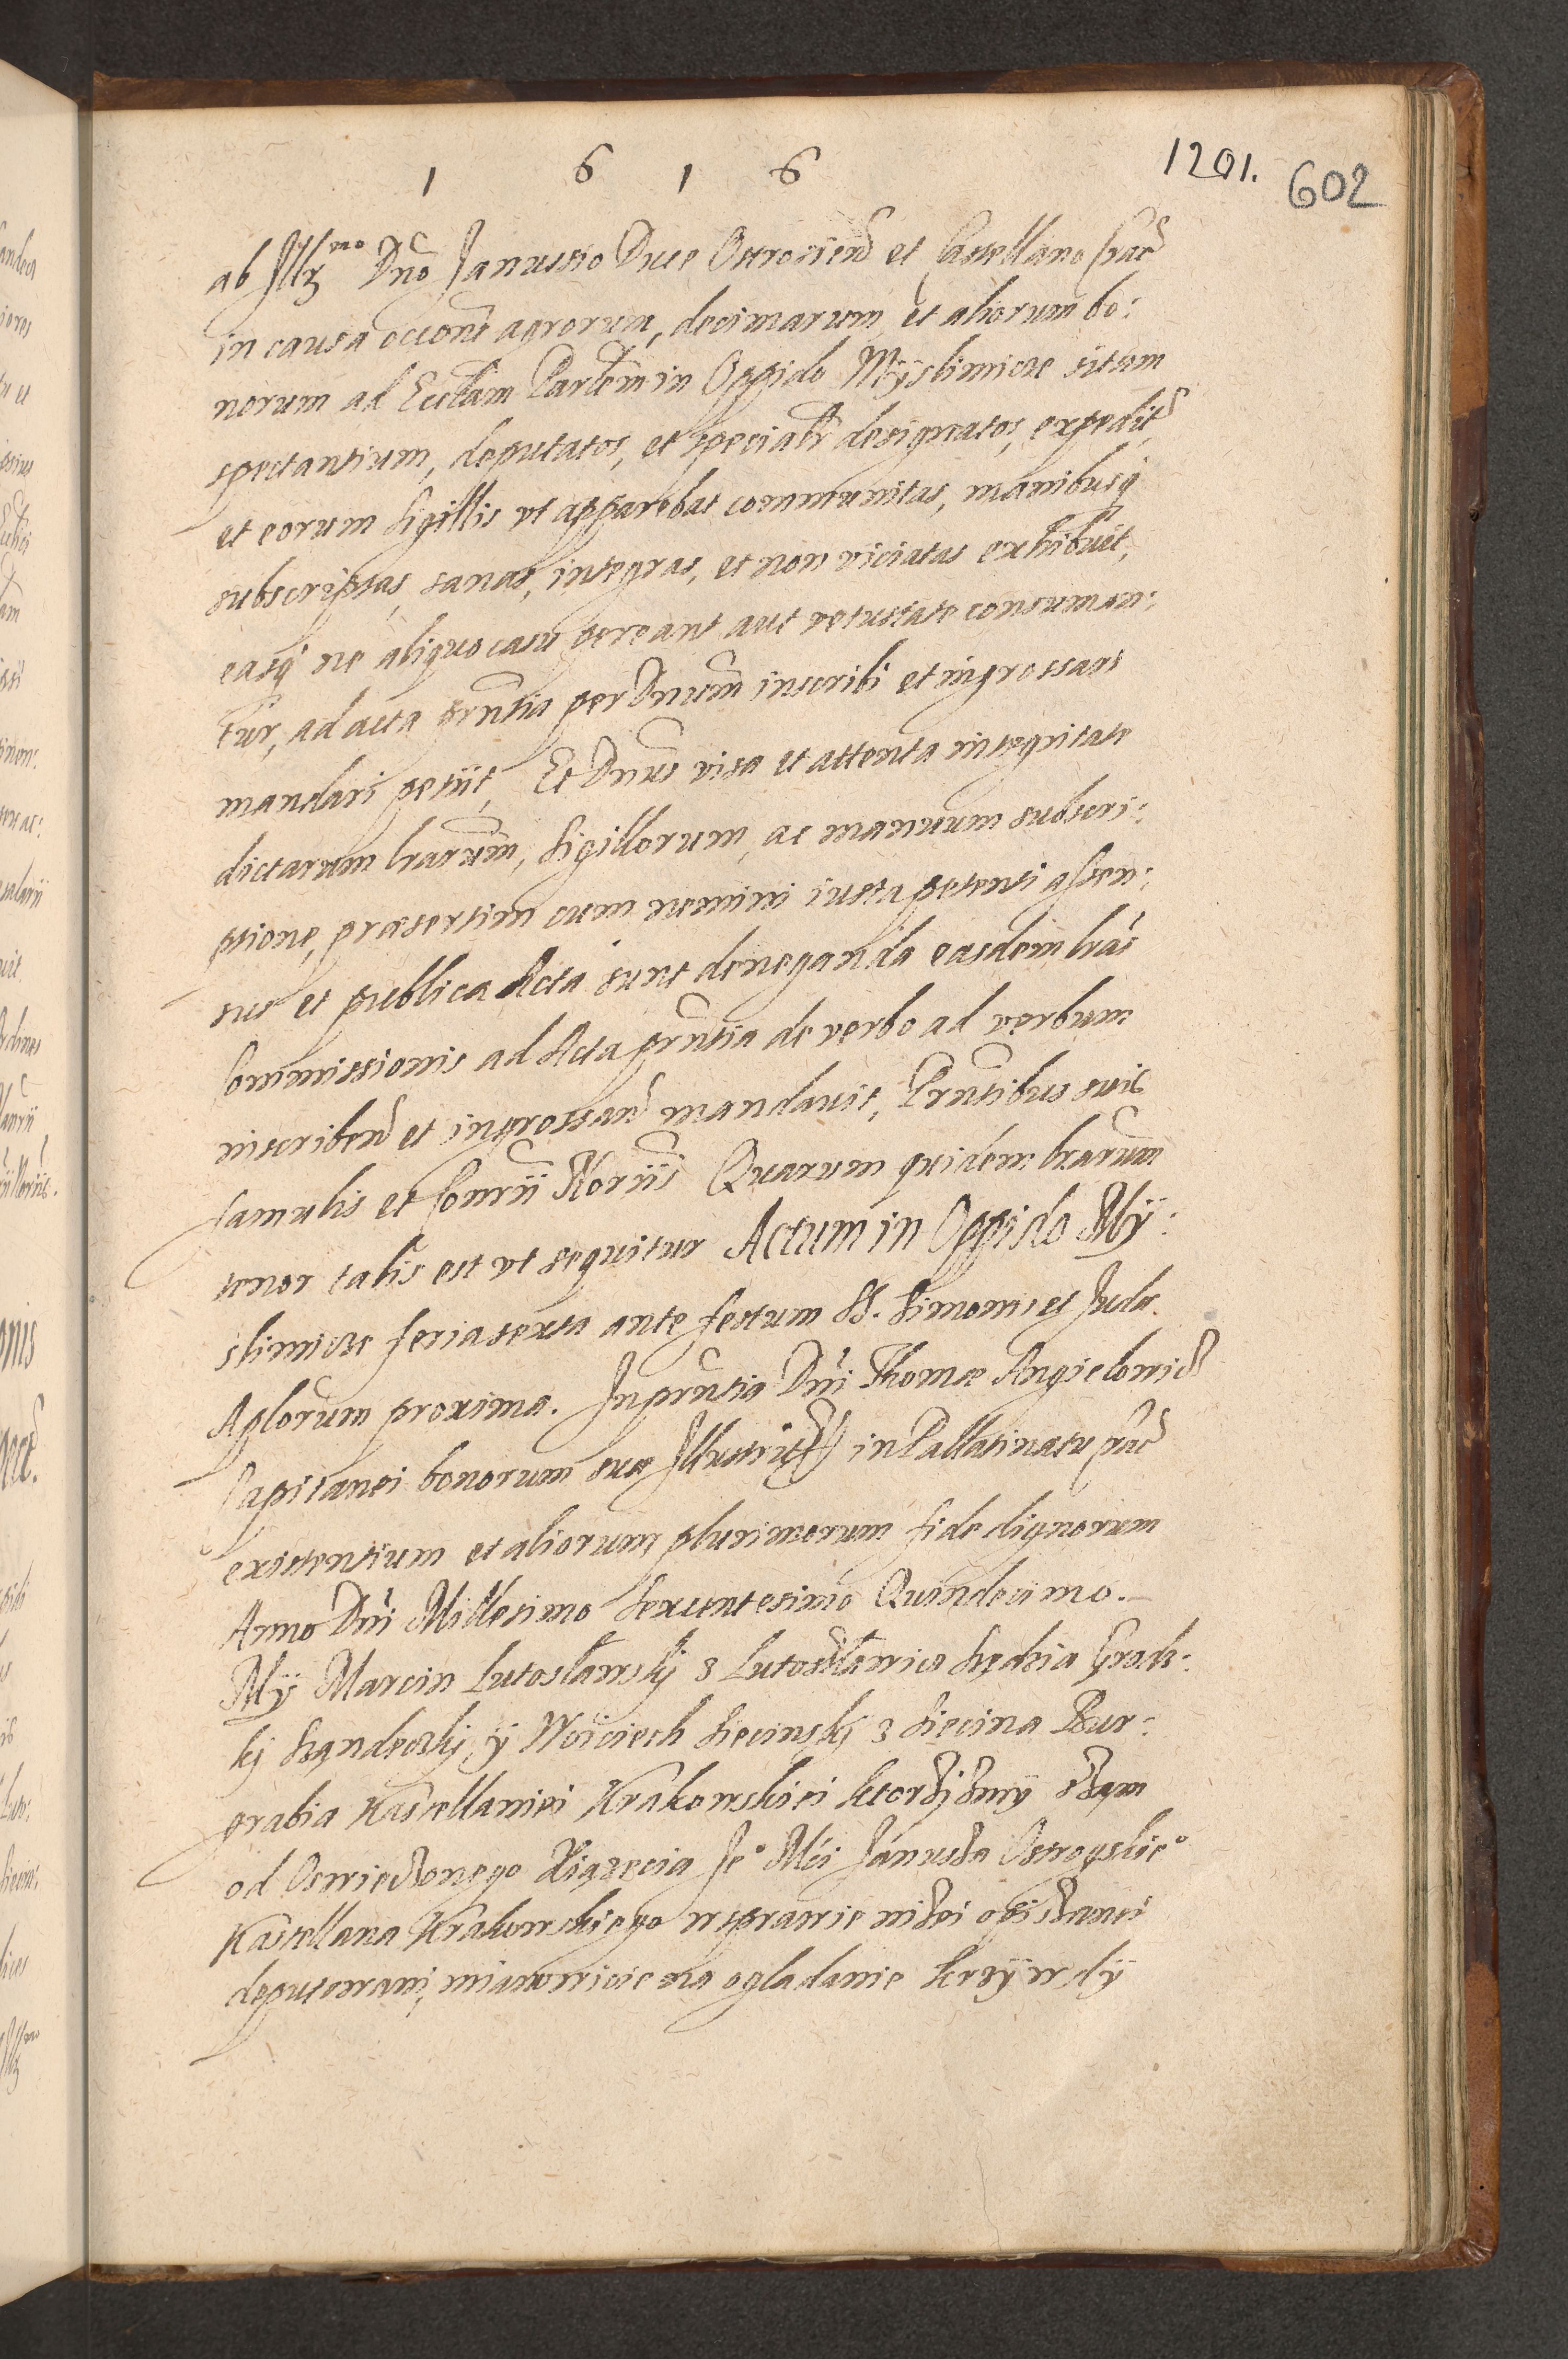 1 6 1 6
1201. 602
ab Illmo Dno Janussio Duce Ostrosien et Castellano Crac
in causa occone agrorum, decimarum, et aliorum bo:
norum ad Ecclam Parlem in Oppido Myslimicze sitam
spectantium, deputatos, et specialr designatos, expedit
et eorum Sigillis vt apparebat communitas, manibusq
subscriptas, sanas, integras, et non viciatas exhibuit,
easq ne aliquo casu pereant aut vetustate consuman:
tur, ad acta prntia per Dnum inscribi et ingrossari
mandari petiit, Et Dnus visa et attenta integritate
dictarum lrarum, Sigillorum, ac manuum subscri:
ptione, præsertim cum nemini iusta petenti assen:
sus et publica Acta sunt deneganda easdem lras
Commissionis ad Acta prntia de verbo ad verbum
inscriben et ingrossan mandauit, Prntibus suis
famulis et Conrii Noriis Quarum quidem lrarum
tenor talis est vt sequitur Actum in Oppido My:
slimicze feria sexta ante festum SS. Simonis et Judæ
Aplorum proxima. In prntia Dni Thomæ Angielowicz
Capitanei bonorum suæ in Pallatinatu Crac
existentium et aliorum plurimorum fide dignorum
Anno Dni Millesimo Sexcentesimo Quindecimo.
My Marcin Lutoslawskj z Lutoslawicz Sędzia Grodz:
kj Sąndeczkj, y Woiciech Siecinskj z Siecina Bur:
grabia Kastellaniei Krakowskiei ktorzysmy
od Oswieczonego Xiązecia Jeo Mci Janusza Ostrogskieo
Kastellana Krakowskiego w sprawie nizei opiszanei
deputowani, mianowicie na ogladanie krzywdy